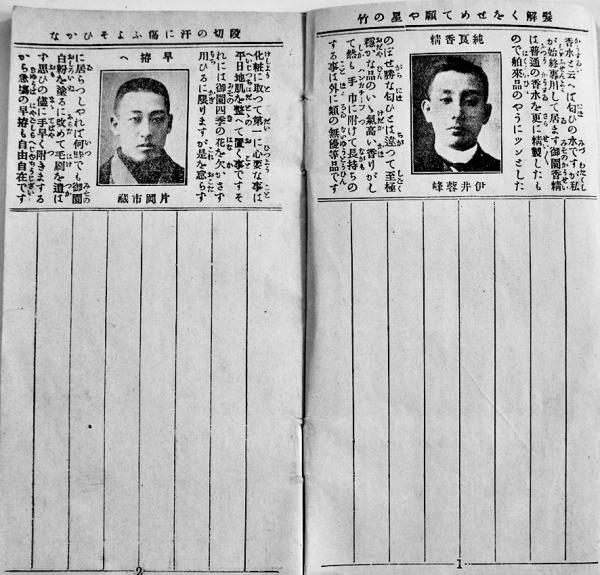 髪解くをせめて願や星の竹
純良香精
香水と云へば匂ひの水ですが私
が始終專用して居ます御園香精
は普通の香水を更に精製したも
ので舶來品のやうにツンとした
のぼせ勝な匂ひとは違つて至極
穩かな品のいゝ氣高い香りがし
て然も手巾に附けて長持ちの
する事は外に類の無優等品です
伊井蓉峰
1
段切の汗に傷ふよそひかな
早拵へ
化粧に取つて第一に心要な事は
平日地肌を整へて置く事ですそ
れには御園四季の花を欠かさず
用ひるに限りますが是を怠らず
に居らつしやれば何時でも御園
白粉を塗るに改めて毛刷を遣は
ず思ひの儘に手早く附きまする
から急塲の早拵も自由自在です
片岡市蔵
2